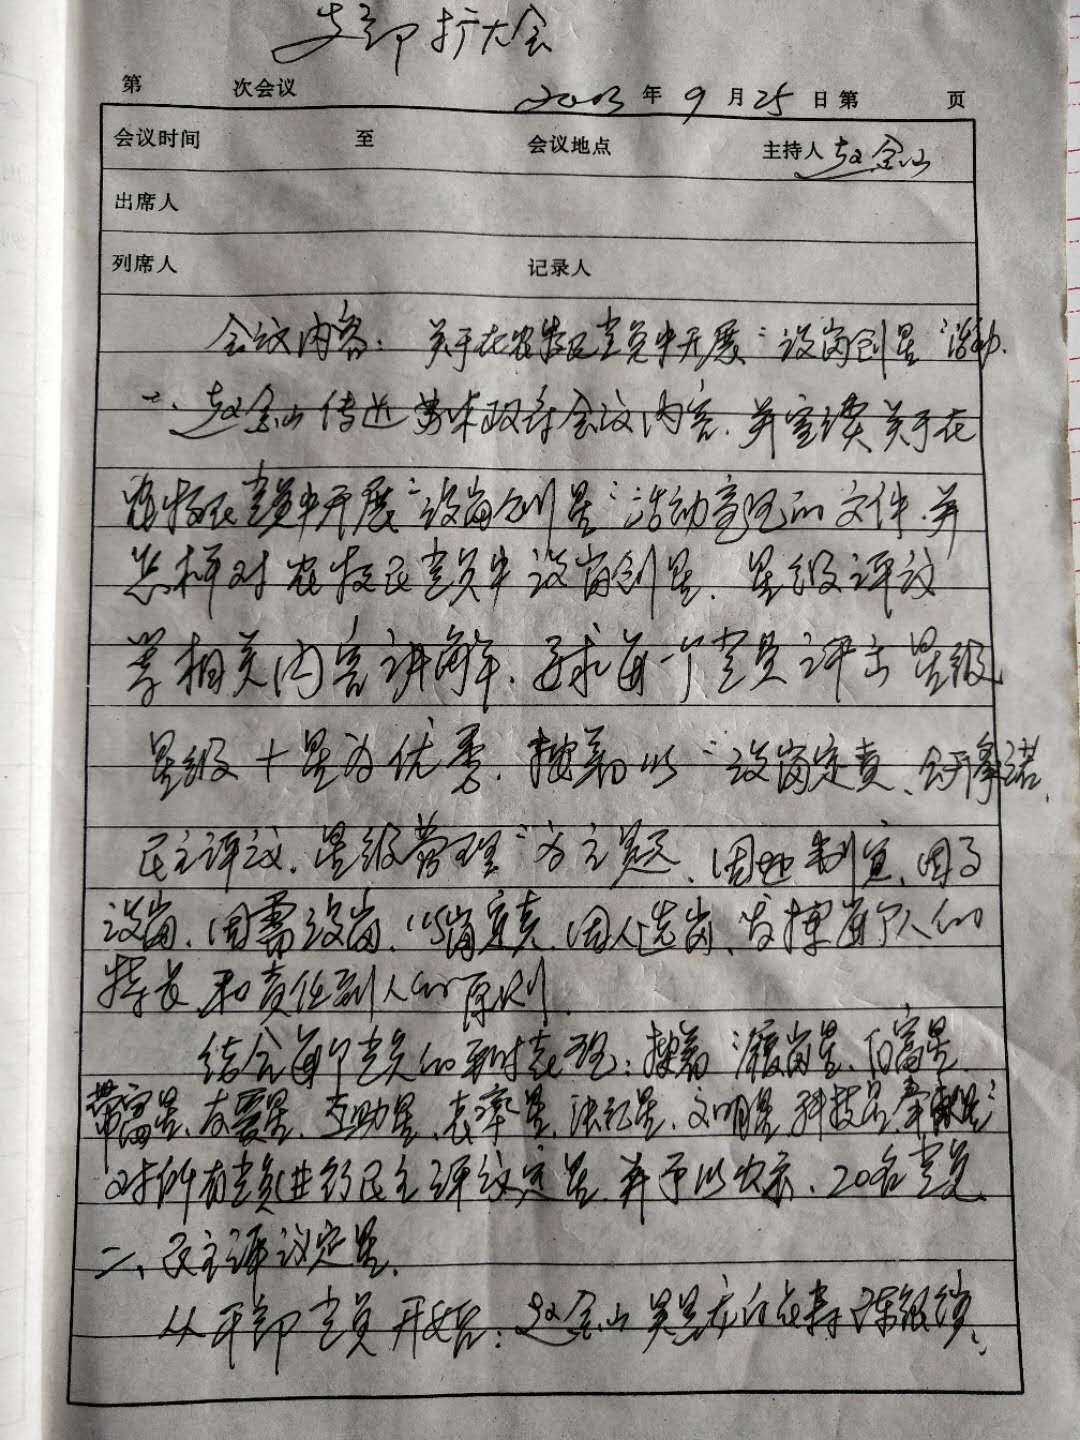 支部扩大会
第 次会议 2003年9月25日第 页
会议时间 至 会议地点 主持人 赵金山
出席人
列席人 记录人
会议内容：关于在农牧民党员中开展“设岗创星”活动.
一、赵金山传达 政府会议内容.并宣读关于在
农牧民党员中开展“设岗创星”活动 的文件.并
怎样对农牧民党员中设岗创星、星级评议
等相关内容讲解.要求每一个党员评出星级
星级十星为优秀.按着以“设岗定责、公开承诺、
民主评议、星级管理”为主题、因地制宜、因事
设岗、因需设岗、以岗定责、因人选岗、发挥每个人的
特长和责任到人的原则.
结合每个党员的平时表现：按着“履岗星、自富星、
带富星、友爱星、互助星、表率星、法纪星、文明星、科技星、奉献星”
对所有党员进行民主评议定星.并予以公示、20名党员.
二、民主评议定星.
从干部党员开始：赵金山